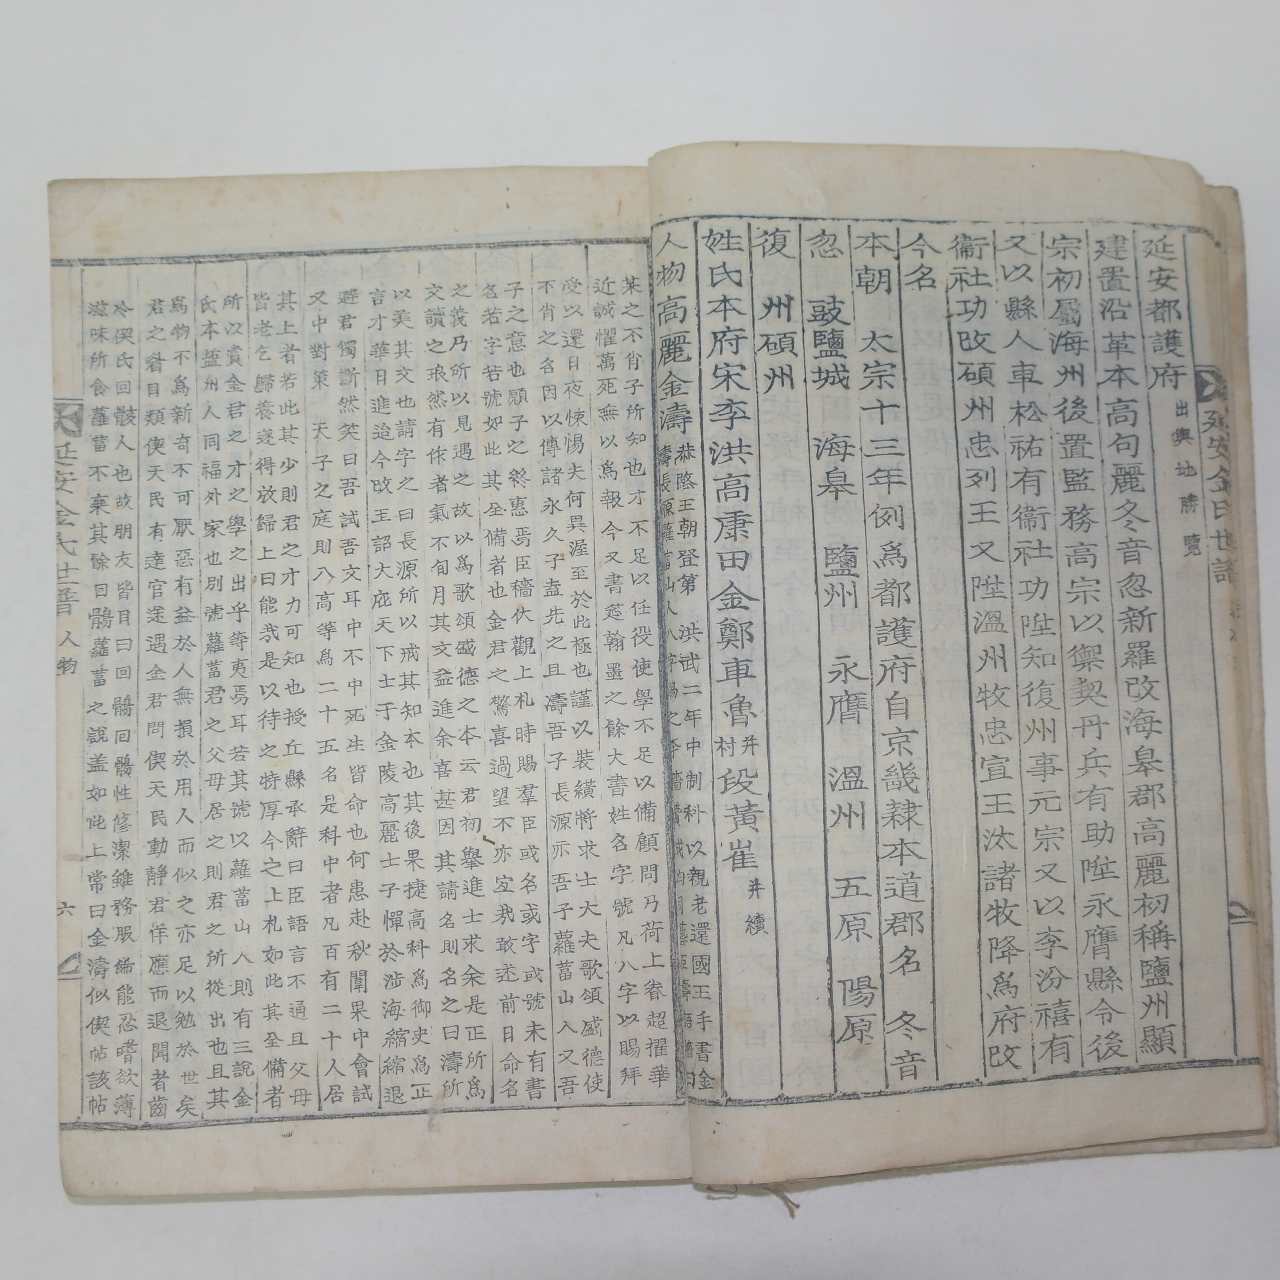 延安都護府 出輿地勝覽
建置沿革本高句麗冬音忽新羅改海皐郡高麗初稱鹽州顯
宗初屬海州後置監務高宗以禦契丹兵有助陞永膺縣令後
又以縣人車松祐有衞社功陞知復州事元宗又以李汾禧有
衞社功改碩州忠列王又陞溫州牧忠宣王汰諸牧降爲府改
今名
本朝 太宗十三年例爲都護府自京畿隷本道郡名 冬音
忽 豉鹽城 海皐 鹽州 永膺 溫州 五原 陽原
復州碩州
姓氏本府宋李洪高康田金鄭車魯 并村 段黃崔 并續
人物高麗金濤 恭愍王朝登第 洪武二年中制科以親老還國王手書金
濤長源蘿葍山人八字賜之李穡
某之不肖子所知也才不足以任役使學不足以備顧問乃荷上眷超擢華
近誠懼萬死無以爲報今又書蒄翰墨之餘大書姓名字號凡八字以賜拜
受以還日夜悚惕夫何異渥至於此極也謹以裝䌙將求士大夫歌頌盛德使
不肖之名因以傳諸永久子盍先之且濤吾子長源亦吾子蘿葍山人又吾
子之意也願子之終惠焉臣穡伏觀上札時賜羣臣或名或字或號未有書
名若字若號如此其全備者也金君之驚喜過望不亦宜哉敢述前日命名
之義乃所以見遇之故以爲歌頌盛德之本云君初擧進士求余是正所爲
文讀之琅然有作者氣不旬月其文益進余喜甚因其請名則名之曰濤所
以美其文也請字之曰長源所以戒其知本也其後果捷高科爲御史爲正
言才華日進迨今改王詔大庇天下士于金陵高麗士子憚於涉海縮縮退
避君獨斷然笑曰吾試吾文耳中不中死生皆命也何患赴秋闈果中會試
又中對策 天子之庭則八高等爲二十五名是科中者凡百有二十人居
其上者若此其少則君之才力可知也授丘縣承辭曰臣語言不通且父母
皆老乞歸養遂得放歸上曰能哉是以待之特厚今之上札如此其全備者
所以貴金君之才之學之出乎等夷焉耳若其號以蘿葍山人則有三說金
氏本鹽州人同福外家也別號蘿葍君之父母居之則君之所從出也且其
爲物不爲新奇不可厭惡有益於人無損於用人而似之亦足以勉於世矣
君之眷目類偰天民有達官遂遇金君問偰天民動靜君佯應而退聞者齒
冷偰氏回骸人也故朋友皆目曰回鶻回鶻性修潔雖務服餙能忍嗜欲薄
滋味所食蘿葍不棄其餘回鶻蘿葍之說盖如此上常曰金濤似偰帖該帖
延安金氏世譜 人物 六
延安金氏世譜